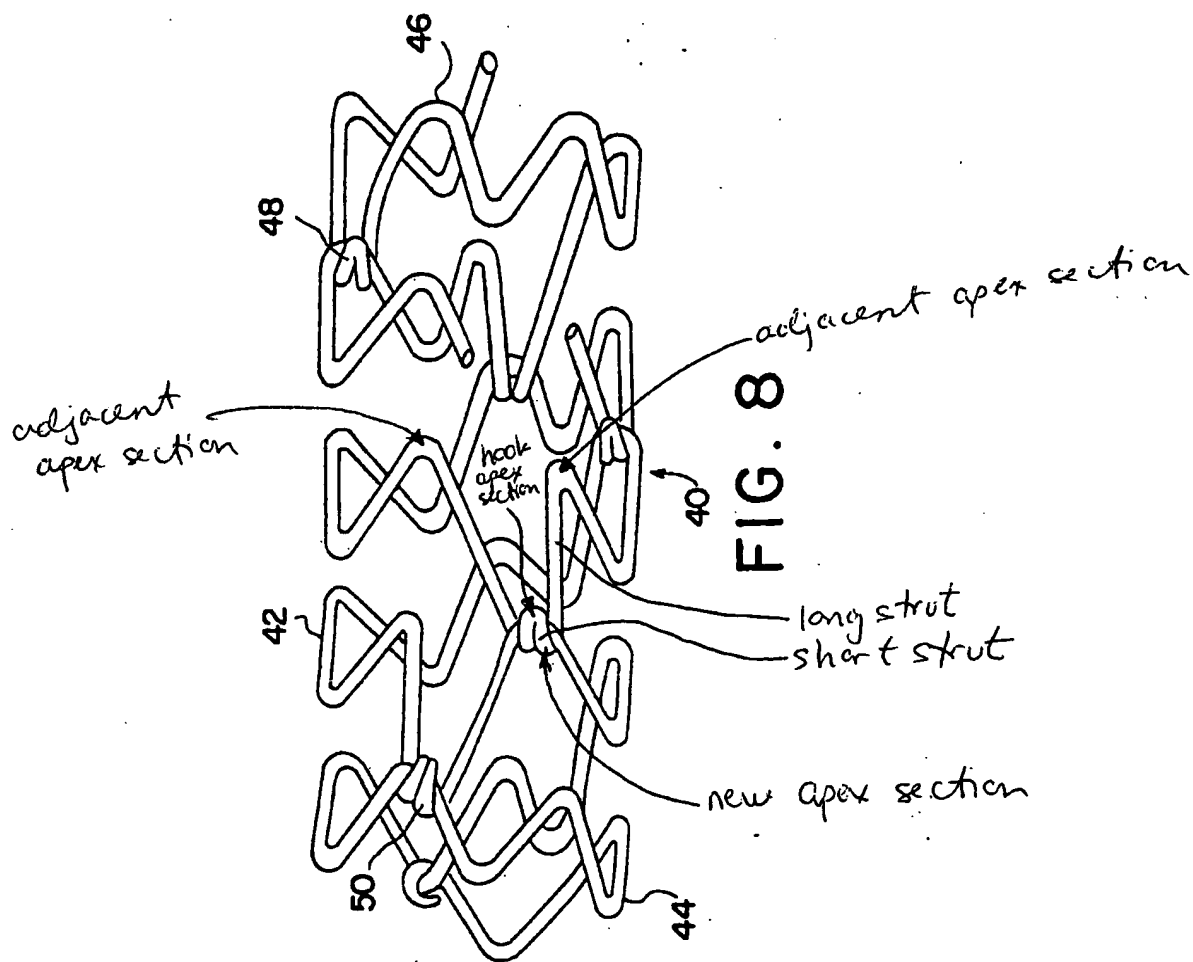 46
48
adjacent apex section
adjacent
apex section
hook
apex
section
42
40
FIG. 8
long strut
short strut
new apex section
50
44